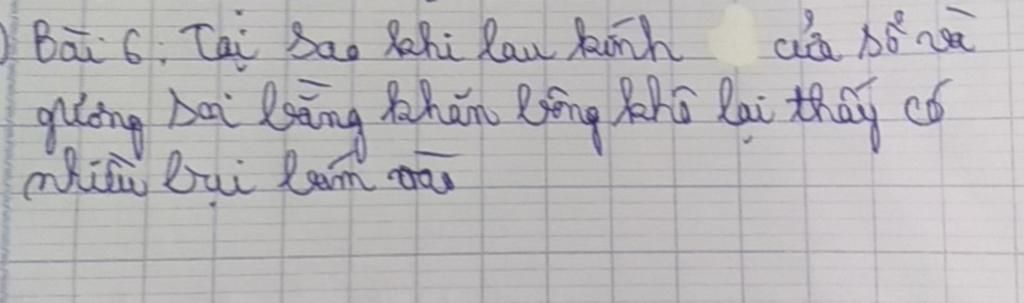 Bài 6: Tại sao khi lau kính cửa sổ và
gương soi bằng khăn bông khô lại thấy có
nhiều bụi bám vào